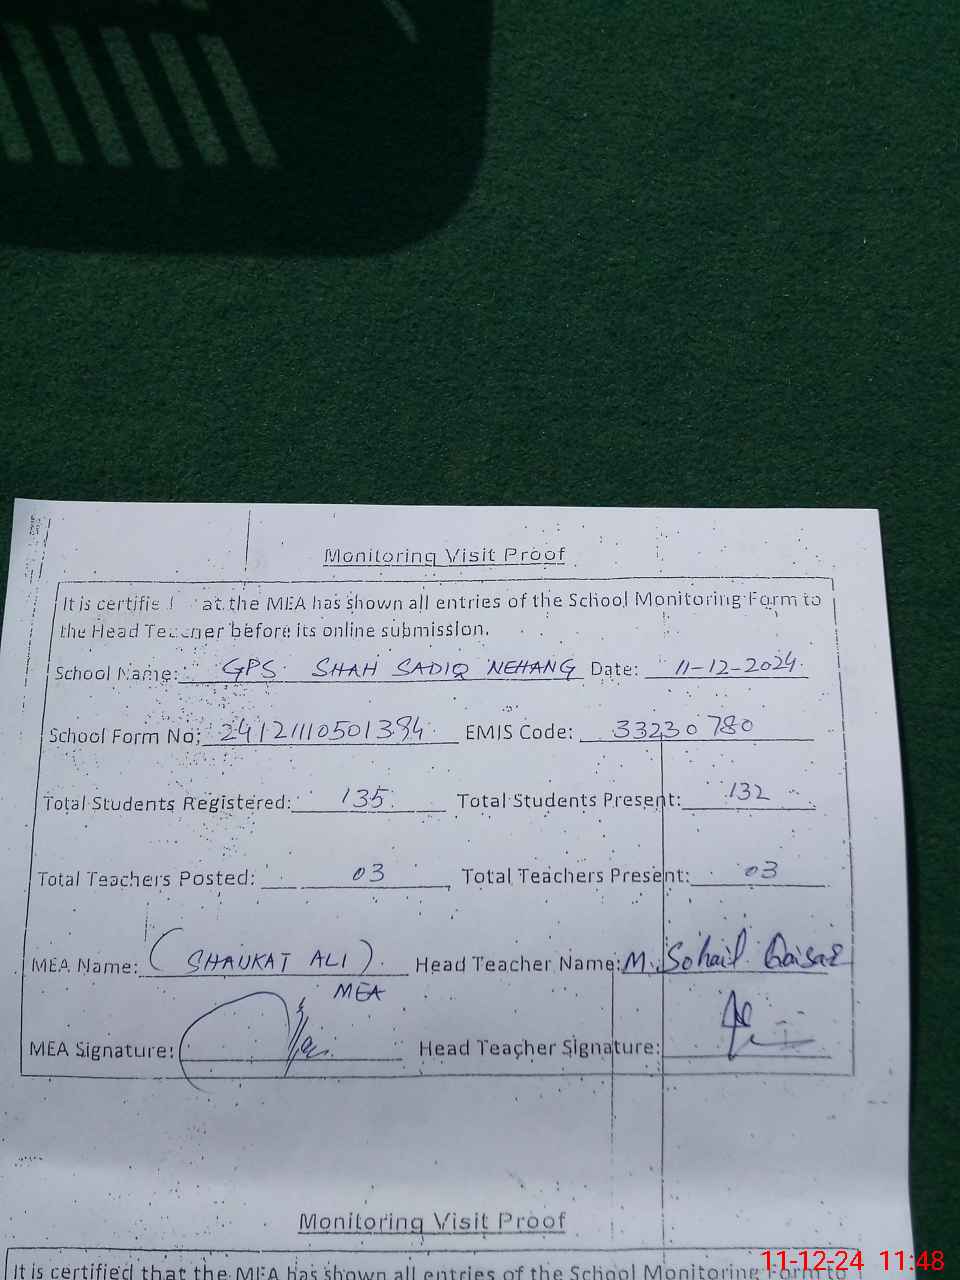 Monitoring Visit Proof
It is certifie at the MEA has shown all entries of the School Monitoring Form to
the Head Teacher before its online submission.
School Name: GPS. SHAH SADIQ NEHANG Date: 11-12-2024.
School Form No: EMIS Code: 33230780
Total Students Registered: 135. Total Students Present: 132
Total Teachers Posted: 03 Total Teachers Present: 03
MEA Name: (SHAUKAT ALI). Head Teacher Name: M. Sohail Qaisar
MEA
MEA Signature: Head Teacher Signature:
Monitoring Visit Proof
It is certified that the MEA has shown all entries of the School Monitoring Form to
11-12-24 11:48